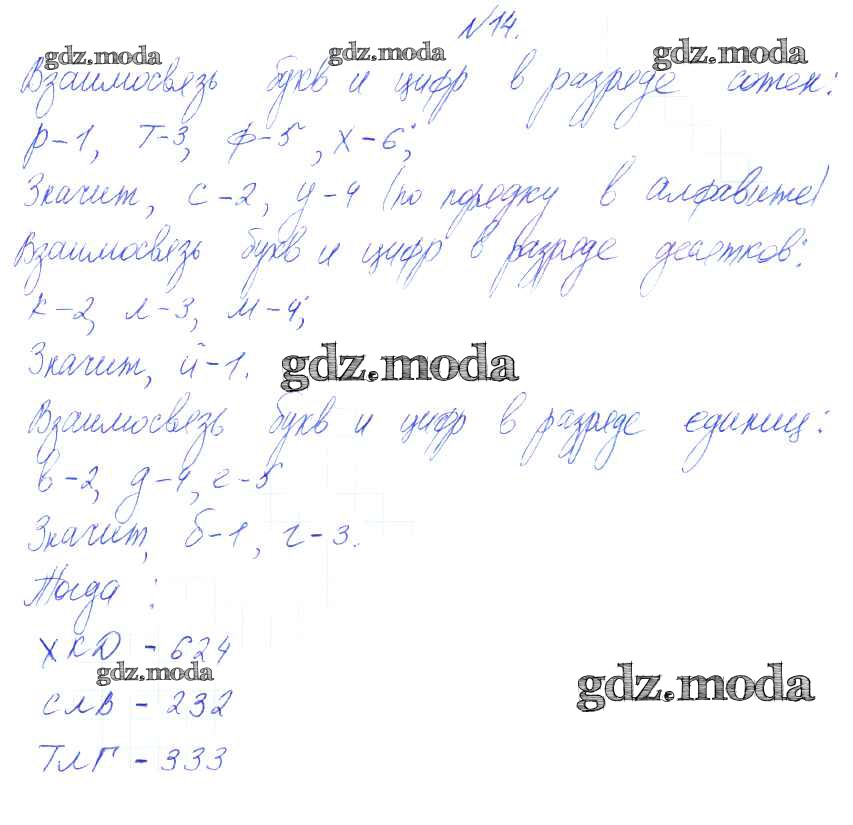 №14.
gdz.moda gdz.moda gdz.moda
Взаимосвязь букв и цифр в разряде сотен:
р-1, т-3, ф-5, х-6;
Значит, с-2, у-4 (по порядку в алфавите)
Взаимосвязь букв и цифр в разряде десятков:
к-2, л-3, м-4;
Значит, й-1.
gdz.moda
Взаимосвязь букв и цифр в разряде единиц:
в-2, д-4, е-5
Значит, б-1, г-3.
Тогда:
ХКД - 624
gdz.moda
gdz.moda
СЛВ - 232
ТЛГ - 333